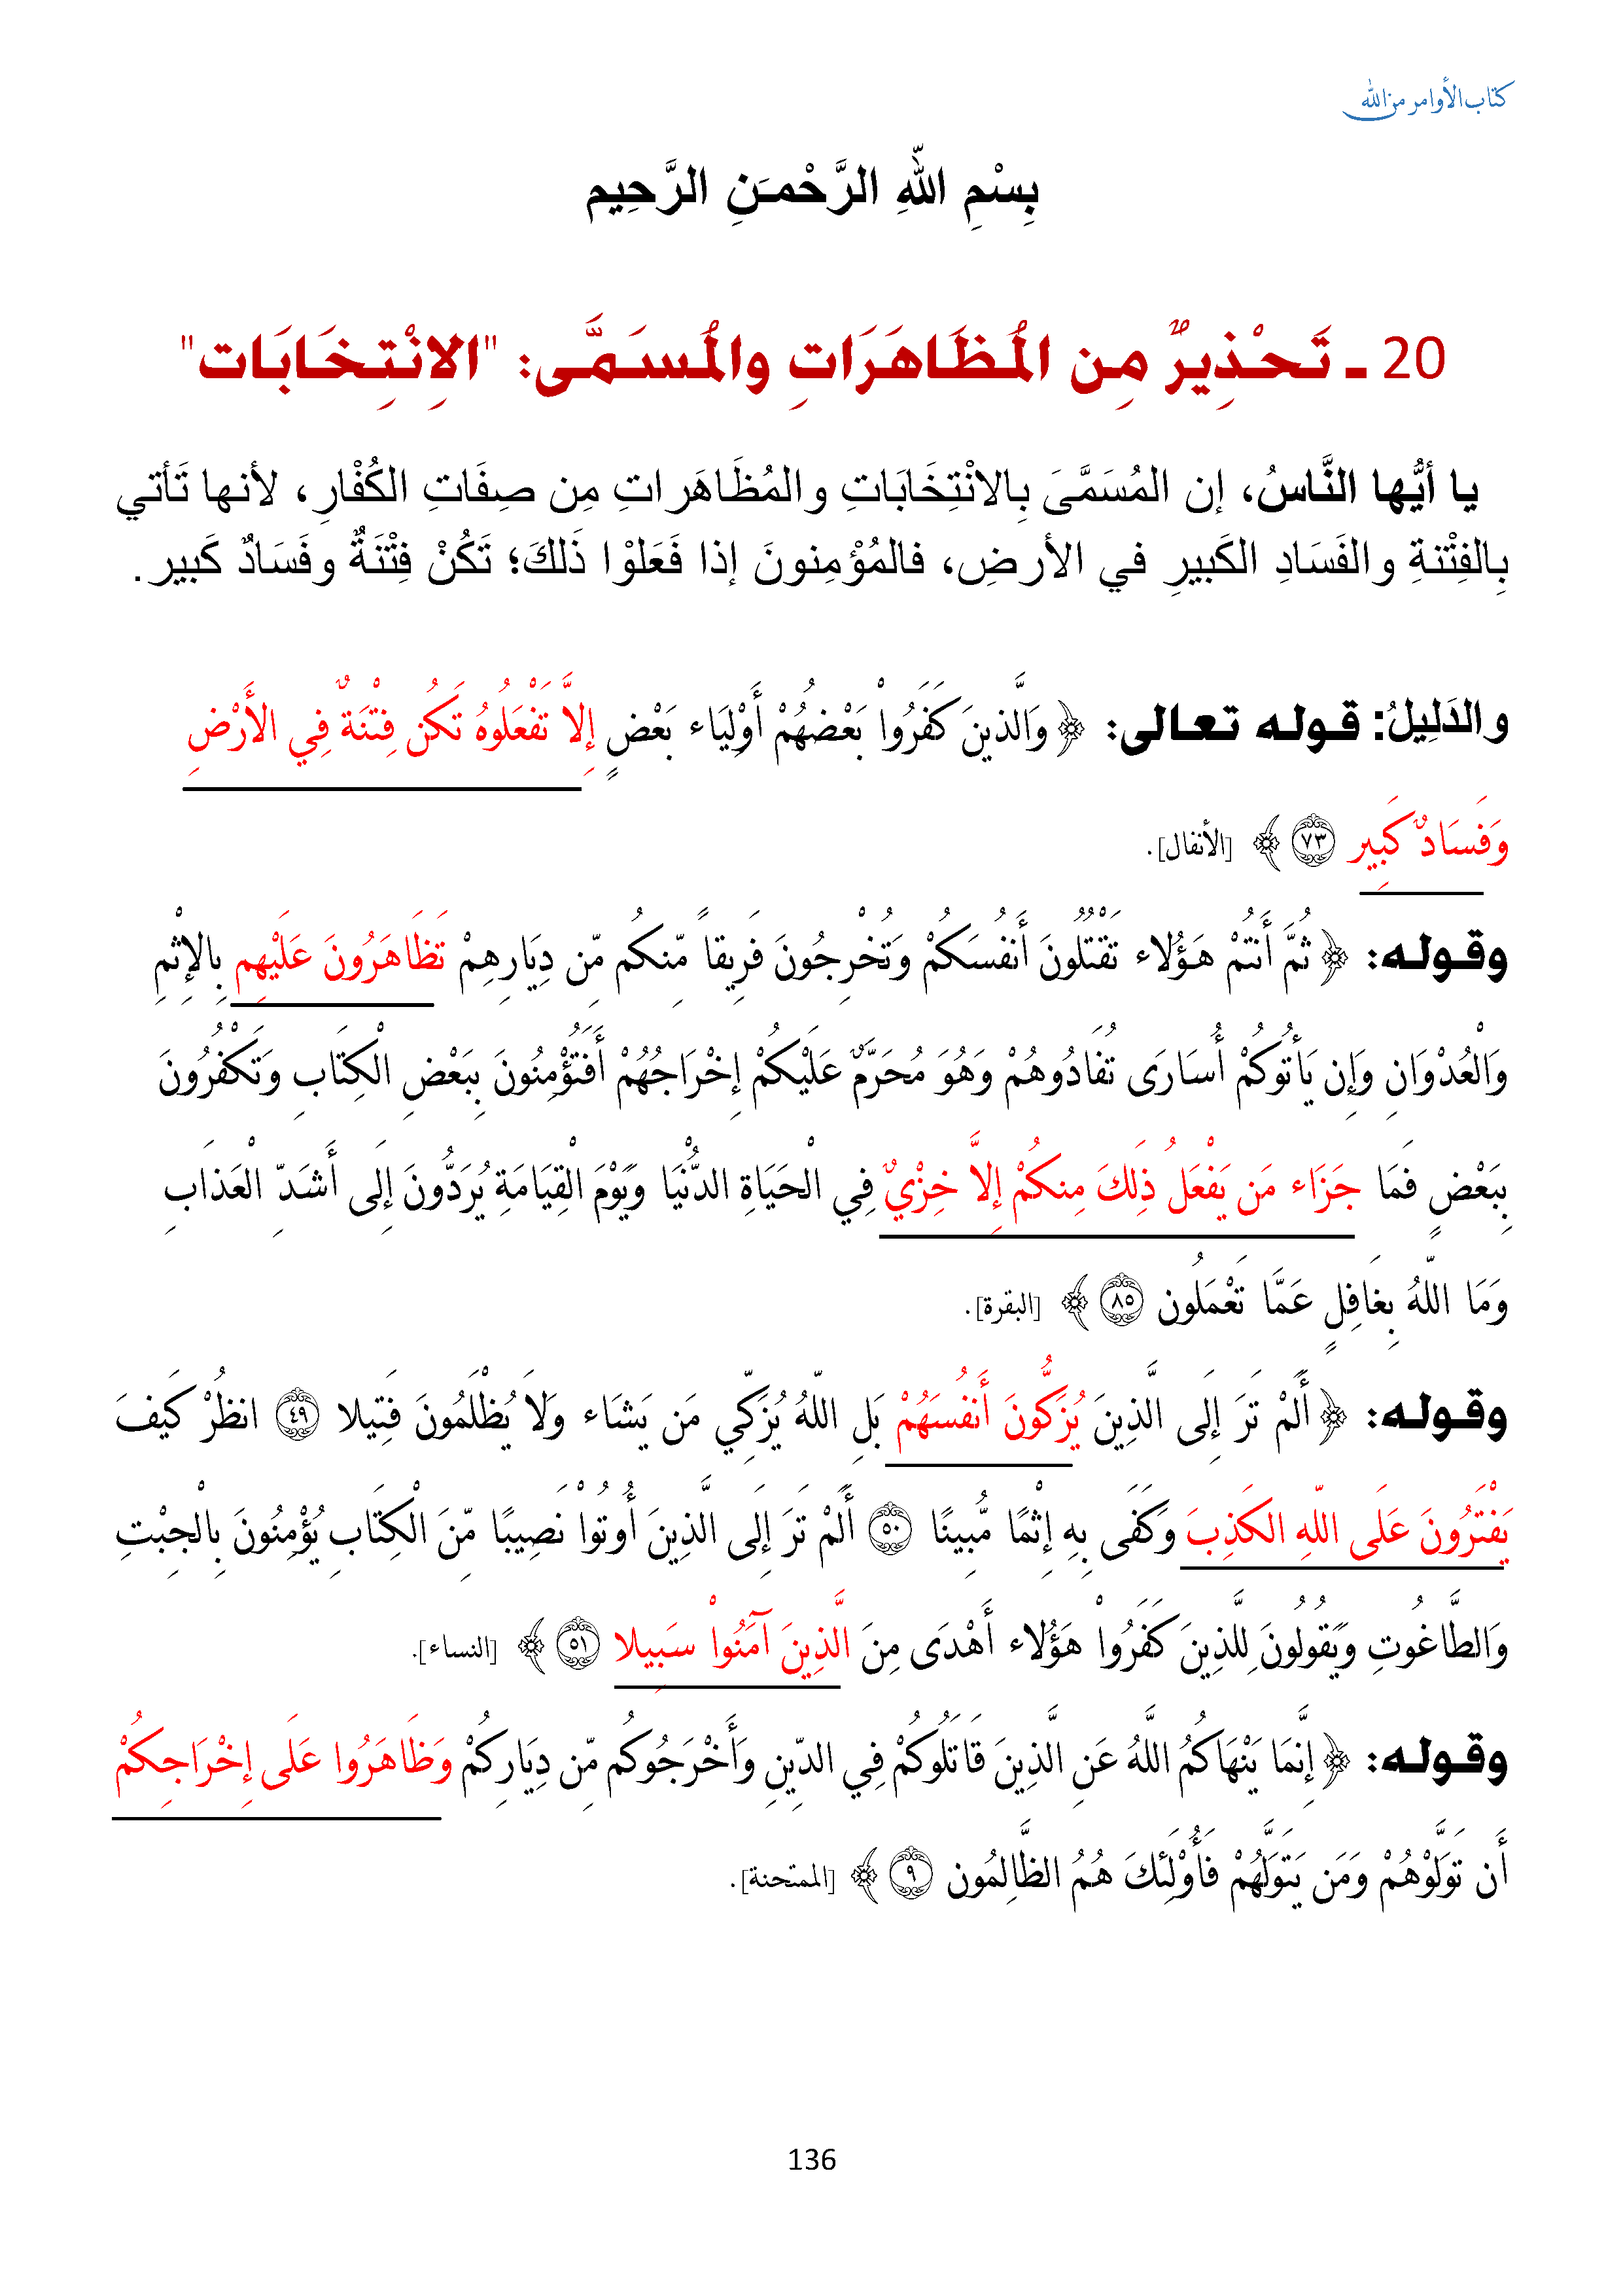 كتاب الأوامر من الله
بِسْمِ اللّهِ الرَّحْمـَنِ الرَّحِيم
20 ـ تَحْذِيرٌ مِن المُظَاهَرَاتِ والمُسَمَّى: "الاِنْتِخَابَات"
يا أيُّها النَّاسُ، إن المُسَمَّىَ بِالانْتِخَابَاتِ والمُظَاهَراتِ مِن صِفَاتِ الكُفْارِ، لأنها تَأتي
بِالفِتْنةِ والفَسَادِ الكَبيرِ في الأرضِ، فالمُؤْمِنونَ إذا فَعَلوْا ذَلكَ؛ تَكُنْ فِتْنَةٌ وفَسَادٌ كَبير.
والدَلِيلُ: قوله تعالى: ﴿وَالَّذينَ كَفَرُواْ بَعْضُهُمْ أَوْلِيَاء بَعْضٍ إِلاَّ تَفْعَلُوهُ تَكُن فِتْنَةٌ فِي الأَرْضِ
وَفَسَادٌ كَبِير ٧٣﴾ [الأنفال].
وقوله: ﴿ثُمَّ أَنتُمْ هَـؤُلاء تَقْتُلُونَ أَنفُسَكُمْ وَتُخْرِجُونَ فَرِيقاً مِّنكُم مِّن دِيَارِهِمْ تَظَاهَرُونَ عَلَيْهِم بِالإِثْمِ
وَالْعُدْوَانِ وَإِن يَأتُوكُمْ أُسَارَى تُفَادُوهُمْ وَهُوَ مُحَرَّمٌ عَلَيْكُمْ إِخْرَاجُهُمْ أَفَتُؤْمِنُونَ بِبَعْضِ الْكِتَابِ وَتَكْفُرُونَ
بِبَعْضٍ فَمَا جَزَاء مَن يَفْعَلُ ذَلِكَ مِنكُمْ إِلاَّ خِزْيٌ فِي الْحَيَاةِ الدُّنْيَا وَيَوْمَ الْقِيَامَةِ يُرَدُّونَ إِلَى أَشَدِّ الْعَذَابِ
وَمَا اللّهُ بِغَافِلٍ عَمَّا تَعْمَلُون ٨٥﴾ [البقرة].
وقوله: ﴿أَلَمْ تَرَ إِلَى الَّذِينَ يُزَكُّونَ أَنفُسَهُمْ بَلِ اللّهُ يُزَكِّي مَن يَشَاء وَلاَ يُظْلَمُونَ فَتِيلا ٤٩ انظُرْ كَيفَ
يَفْتَرُونَ عَلَى اللّهِ الكَذِبَ وَكَفَى بِهِ إِثْمًا مُّبِينًا ٥٠ أَلَمْ تَرَ إِلَى الَّذِينَ أُوتُواْ نَصِيبًا مِّنَ الْكِتَابِ يُؤْمِنُونَ بِالْجِبْتِ
وَالطَّاغُوتِ وَيَقُولُونَ لِلَّذِينَ كَفَرُواْ هَؤُلاء أَهْدَى مِنَ الَّذِينَ آمَنُواْ سَبِيلا ٥١﴾ [النساء].
وقوله: ﴿إِنَّمَا يَنْهَاكُمُ اللَّهُ عَنِ الَّذِينَ قَاتَلُوكُمْ فِي الدِّينِ وَأَخْرَجُوكُم مِّن دِيَارِكُمْ وَظَاهَرُوا عَلَى إِخْرَاجِكُمْ
أَن تَوَلَّوْهُمْ وَمَن يَتَوَلَّهُمْ فَأُوْلَئِكَ هُمُ الظَّالِمُون ٩﴾ [الممتحنة].
136